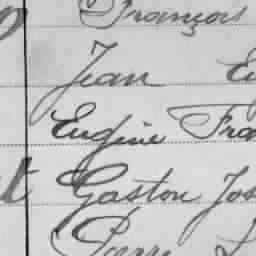 François
Jean Eu
Eugène Fra
Gaston Jos
Pierre